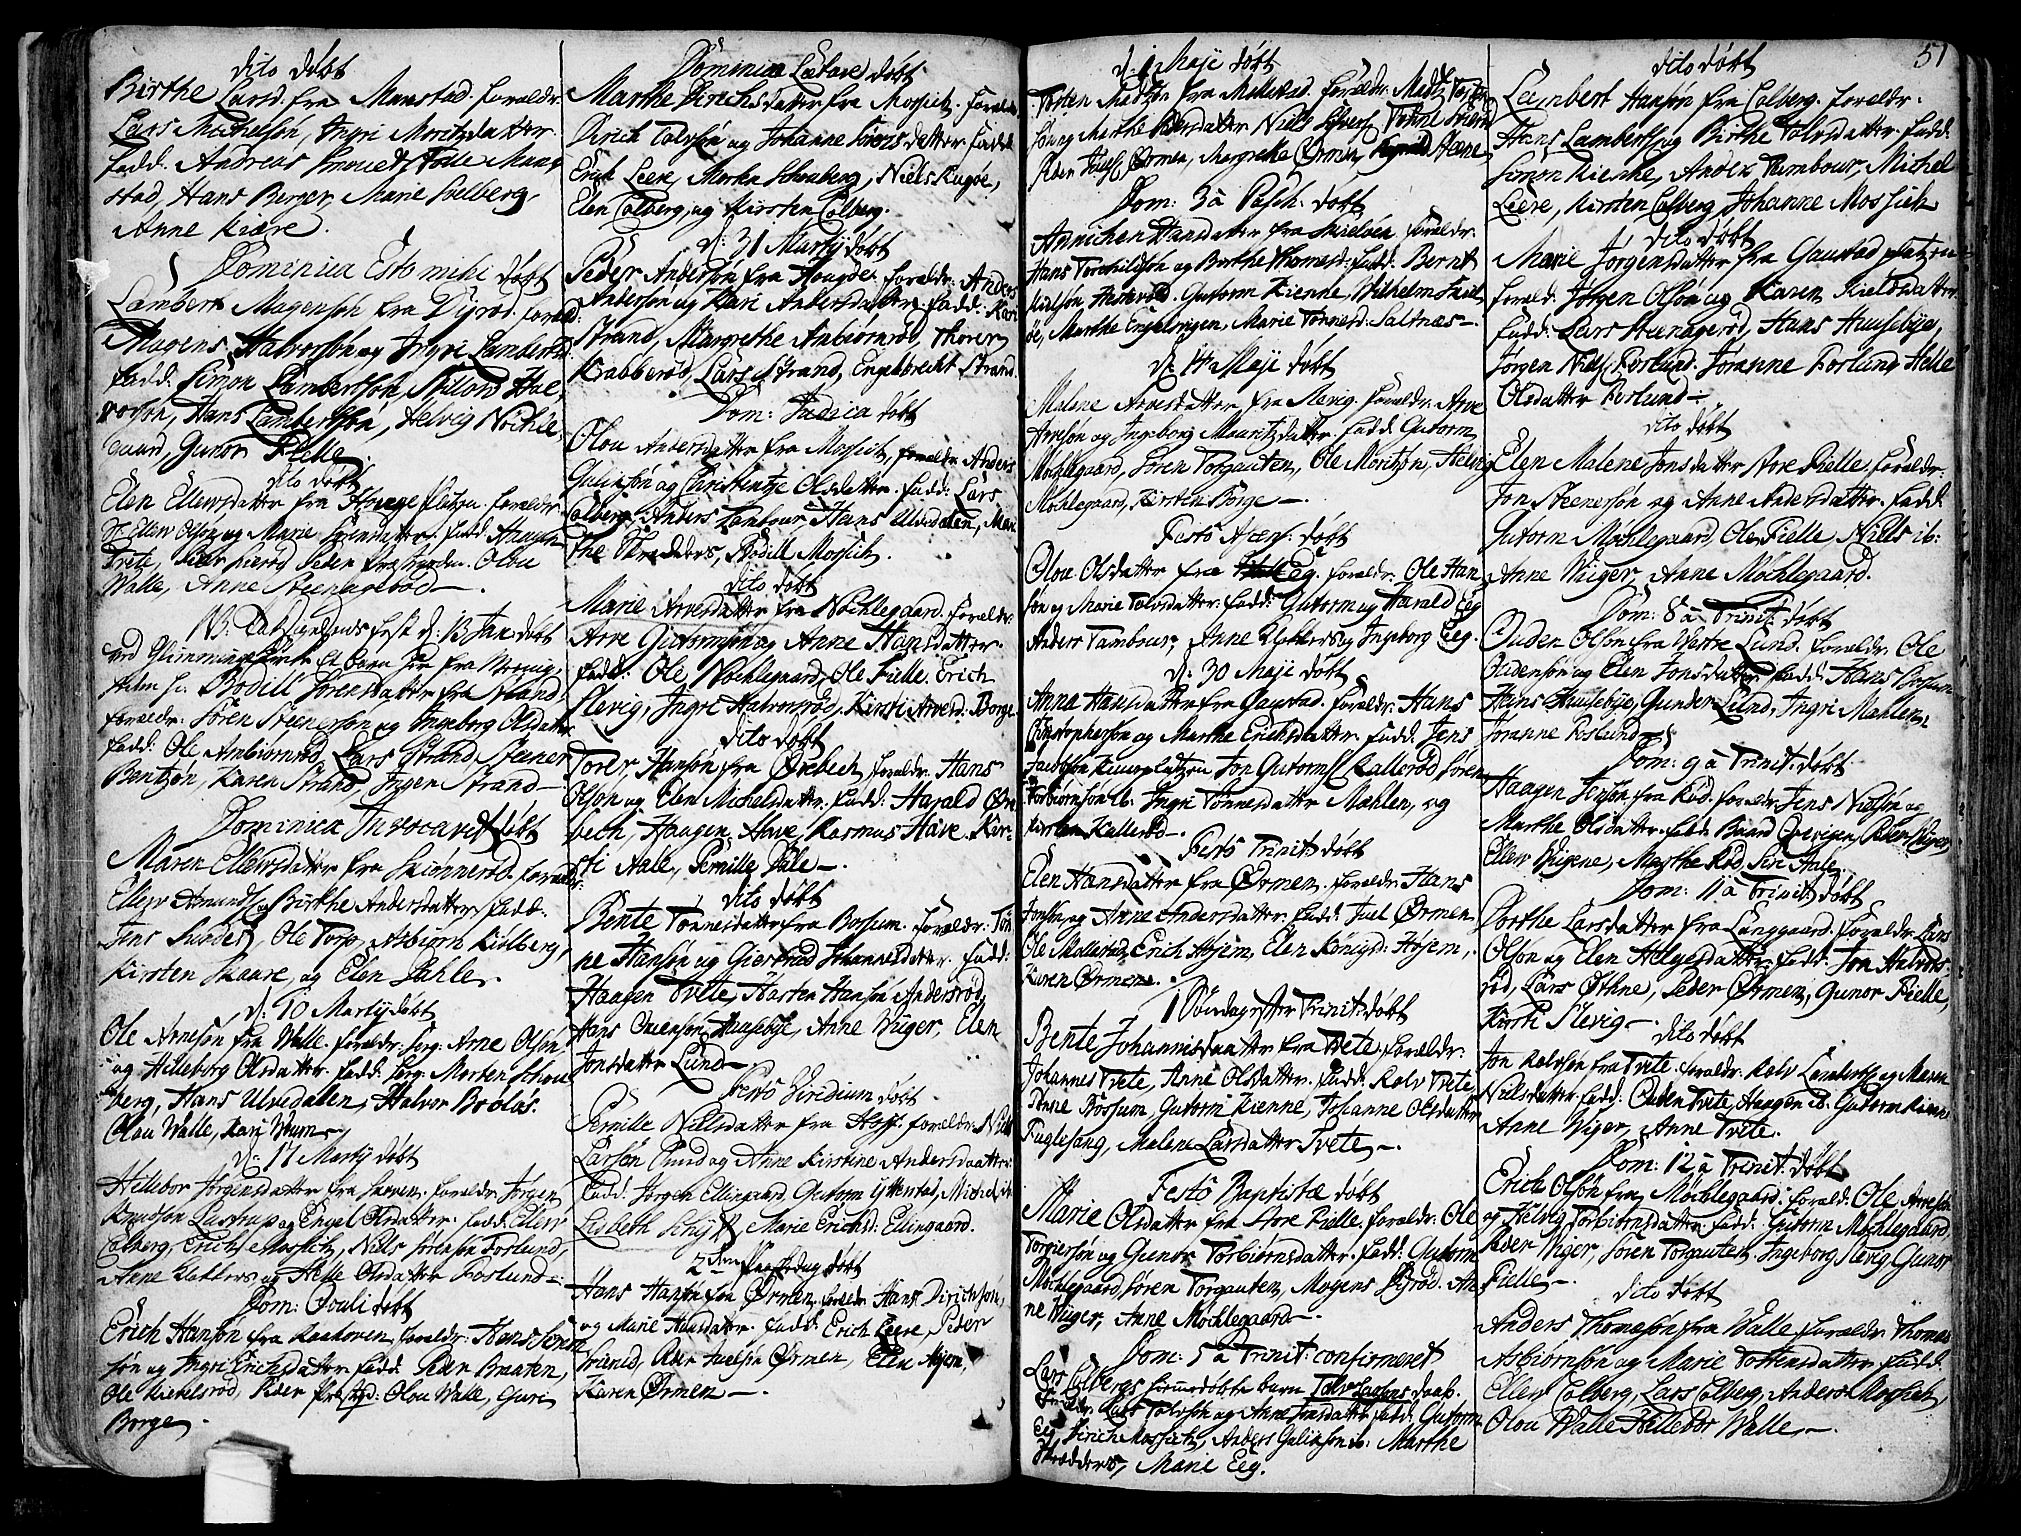 dito döbt
Birthe Larsd. fra Manstad. forældr:
Lars Michelsön, Ingri Moritzdatter
fadd: Andreas Tolle Mang
stad, Hans Berger, Marie Solberg,
Anne Kiære.
Dominica Esto mihi döbt
Lambert Magensön fra Dyröd. foreld:
Mogens Halvorsön og Ingri Lambertsd
fadd: Simon Lambertsön, Hal
vorsn, Hans Lambertsön, Helvig Nöchle
gaard, Gunor Fielle.
dito döbt
Elen Ellevsdatter fra Hauge platzen. foreldr
Ellev Olsön og Marie Sörensdatter. fadd: Haagen
Tvete, Peder Olou
Walle, Anne Steenageröd
NB. d: 13 Jan: döbt
ved Glimminge Kirke et barn her fra
Bodill Sörensdatter fra Strand
foreldr: Sören Steenersön og Ingeborg Olsdatter
fadd: Ole Anbiörnröd, Lars Strand, Steener
Bentzen, Karen Strand, Inger Strand
Dominica Invocavit döbt
Maren Ellevsdatter fra Skönneröd. foreldr:
Ellev Amundsön og Birthe Andersdatter. fadd:
Jens Sunder, Ole Torp, Asbiörn Kiölberg,
Kirsten Skaare, og Elen Dahle.
d: 10 Martij döbt
Ole Arnesön fra Walle. foreldr: Serg: Arne Olsen
og Hilleborg Olsdatter. fadd: Serg: Morten Schou
berg, Hans Ulvedalen, Halvor Broløs.
Olou Walle, Kari Wum
d: 17 Martij döbt
Hillebor Jörgensdatter fra Skoven. foreldr: Jörgen
Knudsön Lastrup og Engel Olsdatter. fadd: Ellev
Colberg, Erich Mossich, Niels Sörensön Foslund,
Anne Klokkers og Helle Olsdatter Foslund
Dom: Oculi döbt
Erich Hansön fra foreldr: Hans Sören
sön og Ingri Erichsdatter. fadd: Peder Braaten,
Ole Kielsröd, Peder Olou Walle, Guri
Borge.
Dominica Lætare döbt
Marthe Dirichsdatter fra Mossich. foreldr
Dirich Tolvsön og Johanne Siversdatter. fadd:
Erich Leere, Morten Schouberg, Niels Kugöe,
Elen Colberg, og Kirsten Colberg.
d: 31 Martij döbt
Peder Andersön fra Haugöe. foreldr: Anders
Andersön og Kari Andersdatter. fadd: Kari
Strand, Margrethe Anbiörnröd, Thorer
Krabberöd, Lars Strand, Engebrecht Strand.
Dom: Judica döbt
Olou Andersdatter fra Mossich. foreldr: Anders
Guliksön og Christentze Olsdatter. fadd: Lars
Colberg, Anders Tambour, Hans Ulvedalen, Mar
the Skredders, Bodill Mossich.
dito döbt
Marie Arvesdatter fra Nöchlegaard. foreldr:
Arve Gutormsön og Anne Hansdatter.
fadd: Ole Nöchlegaard, Ole Fielle, Erich
Slevig, Ingri Halvorsröd, Kirsti Arvesd: Borge
dito döbt
Torer Hansön fra Ørebech. foreldr: Hans
Olsön og Elen Michelsdatter. fadd: Harald Ørre
bech, Haagen Have, Rasmus Have, Kir-
sti Aale, Pernille Dale
dito döbt
Bente Tönnesdatter fra Bossum. foreldr: Tön
ne Hansön og Giertrud Johannesdatter. fadd:
Haagen Tvete, Karsten Hansön Andersröd,
Hans Ovensön Huusebye, Anne Wiger, Elen
Jonsdatter Lund
Festo Viridium döbt
Pernille Nielsdatter fra Hoff. foreldr: Niels
Larsön Lund og Anne Kirstine Andersdaatter.
fadd: Jörgen Ellingaard, Gutorm Ytterstad, Michel ib:
Lisbeth Schÿtt, Marie Erichsd: Ellingaard.
2den Paaskedag döbt
Hans Hansön fra Ørmen. foreldr: Hans Dirichsön,
og Marie Hansdatter. fadd: Erich Leere, Peder
Peder Juelsön Ørmen, Elen
Karen Ørmen
d: 1 Maji döbt
Torsten Madtzön fra Mallestad. foreldr: Madtz Torsten
sön og Marthe Pedersdatter. Niels
Peder Juelsön Ørmen, Margrethe Ørmen,
Dom: 3 à Pasch: döbt
Annichen Hansdatter fra foreldr:
Hans Torchildsön og Berthe Thomesd: fadd: Bernt
Gutorm Kienne, Wilhelm
Marthe Engelsvigen, Marie Tönnesd: Saltnæs
d: 14 Maji döbt
Malene Arvesdatter fra Slevig. foreldr: Arve
Arvesön og Ingeborg Mauritzdatter. fadd: Gutorm
Mochlegaard, Sören Torgauten, Ole Moritzön, Helvig
Mochlegaard, Kirsten Borge
Festo Ascens: döbt
Olou Olsdatter fra Eeg. foreldr: Ole Han
sön og Marie Tolvsdatter. fadd: Gutorm og Harald Eeg
Anders Tambour, Anne Klokkers og Ingeborg Eeg.
d: 30 Maji döbt
Anne Hansdatter fra Gaustad. foreldr: Hans
Christophersön og Marthe Erichsdatter. fadd: Jens
Jacobsön Jon Gutormsön Kalleröd, Sören
Torbiörnsön ib: Ingri Tönnesdatter Mæhlen, og
Kirsten Kalleröd.
Festo Trinit: döbt
Elen Hansdatter fra Ørmen. foreldr: Hans
Jonsön og Anne Andersdatter. fadd: Juel Ørmen,
Ole Mallestad, Erich Hösem, Elen Höjem,
Karen Ørmen.
1 Söndag efter Trinit: döbt
Bente Johannisdaatter fra Tvete. foreldr:
Johannes Tvete, Anne Olsdatter. fadd: Rolv Tvete,
Bossum, Gutorm Kienne, Johanne Olsdatter
Fuglesang, Malene Larsdatter Tvete
Festo Baptistæ döbt
Marie Olsdatter fra Store Fielle. foreldr: Ole
Torgiersön og Gunor Torbiörnsdatter. fadd: Gutorm
Mochlegaard, Sören Torgauten, Mogens Dyröd. An
ne Wiger, Anne Möchlegaard.
Dom: 5 à Trinit: confirmeret
Lars Colbergs hiemmedöbte barn Tolv Larsens daab.
foreldr: Lars Tolvsön og Anne Jensdatter. fadd: Gutorm
Eeg, Dirich Mossich, Anders Guliksön ib: Marthe
Skredders, Marie Eeg.
51
dito döbt
Lambert Hansön fra Colberg. foreldr:
Hans Lambertsön og Birthe Tolvsdatter. fadd:
Simon Kirche, Anders Tambour, Michel
Leere, Kirsten Colberg, Johanne Mossich
dito döbt
Marie Jörgensdatter fra Gaustad platzen
foreld: Jörgen Olsön og Karen Kieldsdatter
fadd: Lars Steenageröd, Hans Huusebÿe,
Jörgen Nielsön Foslund. Joranne Foslund, Helle
Olsdatter Foslund
dito döbt
Elen Malene Jonsdatter Store Fielle. foreldr.
Jon Steenersön og Anne Andersdatter. fadd:
Gutorm Möchlegaard, Ole Fielle, Niels ib:
Anne Wiger, Anne Möchlegaard.
Dom: 8 à Trinit: döbt
Ouden Olsön fra Lund. foreldr: Ole
Oudensön og Elen Jonsdatter, fadd: Hans Bossum
Hans Huusebÿe, Gunder Lund, Ingri Mæhlen,
Joranne Foslund
Dom: 9 à Trinit: döbt
Haagen Jensön fra Röd. foreldr: Jens Nielsön og
Marthe Olsdatter. fadd: Baard Peder Wiger,
Ellev Marthe Röd, Siri Aale
Dom: 11 à Trinit: döbt
Dorthe Larsdatter fra Langgaard. foreldr: Lars
Olsön og Elen Helgesdatter. fadd: Jon Halvors
röd, Lars Othne, Peder Ørmen, Gunor Fielle,
Kirsti Slevig
dito döbt
Jon Rolvsön fra Tvete. foreldr: Rolv Lambertsön og Maren
Nielsdatter. fadd: Ouden Tvete, Haagen ib: Gutorm Kienne
Anne Wiger, Anne Tvete.
Dom: 12 à Trinit: döbt
Erich Olsön fra Möchlegaard. foreld: Ole Arvesön
og Helvig Torbiörnsdatter. fadd: Gutorm Mochlegaard,
Peder Wiger, Sören Torgauten, Ingeborg Slevig, Gunor
Fielle
dito döbt
Anders Thomesön fra Walle. foreldr: Thomas
Asbiörnsön og Marie Tostensdatter. fadd:
Ellev Colberg, Lars Colberg, Anders Mossich,
Olou Walle, Hillebor Walle.